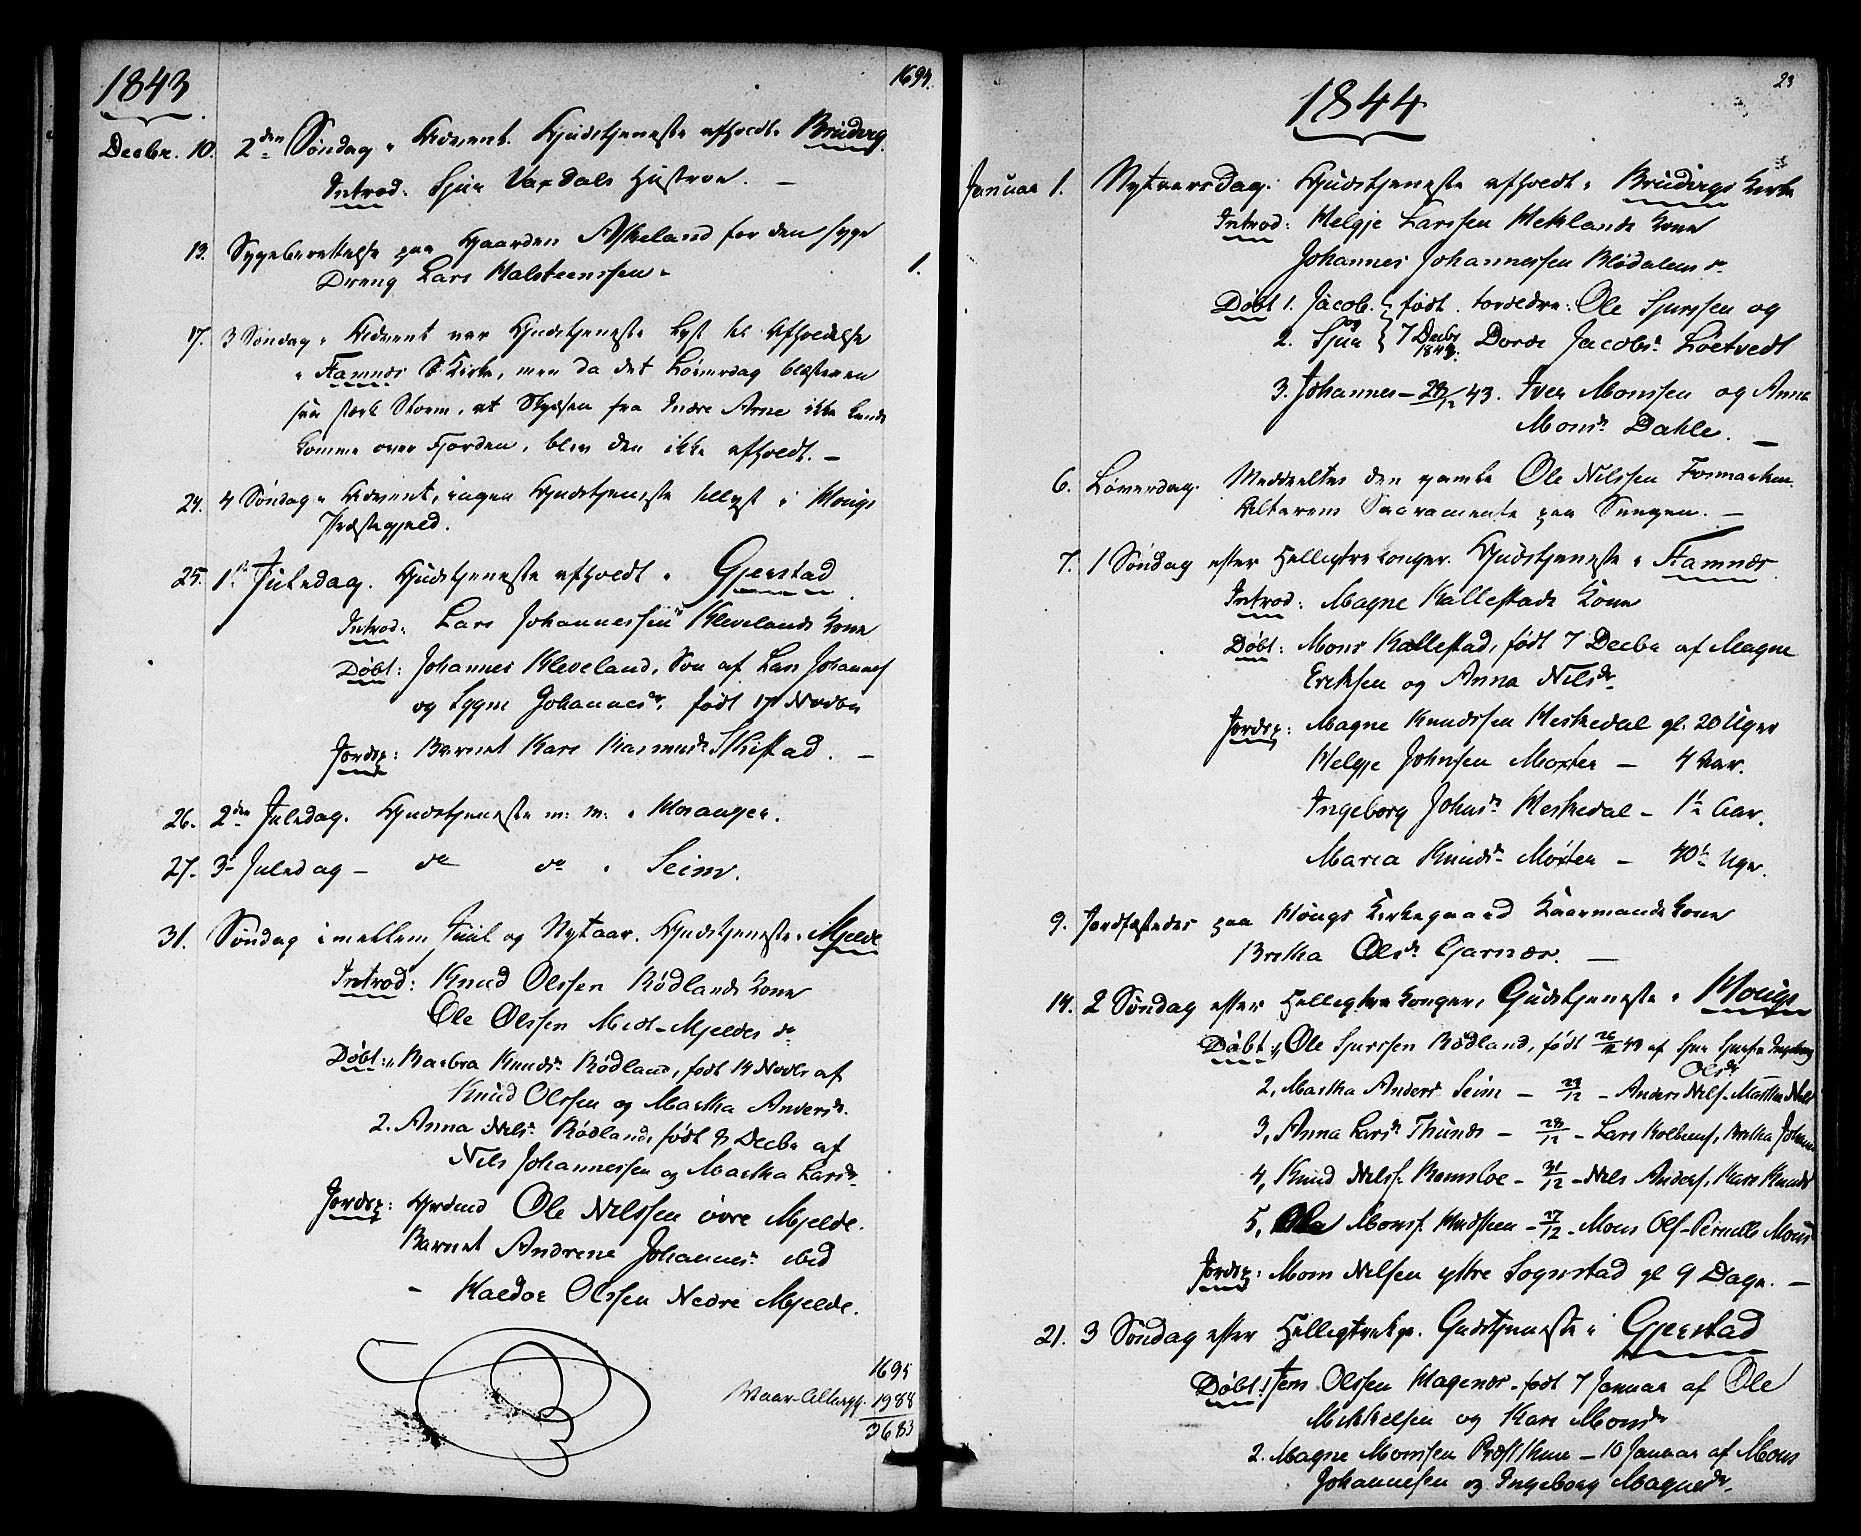 1843
1694.
Decbr. 10. 2den Søndag i Advent. Gudstjeneste afholdt i Bruvig.
Introd: Sjur Vaxdals Hustroe. –
13. Sygeberettelse paa Gaarden Askeland for den syge
Dreng Lars Halsteensen. 1.
17. 3 Søndag i Advent var Gudstjeneste lyst til Afholdelse
i Hamnes Kirke, men da det Løverdag blæste en
saa stærk Storm, at Skydsen fra Indre Arne ikke kunde
komme over Fjorden, blev den ikke afholdt. –
24. 4 Søndag i Advent, ingen Gudstjeneste tillyst i Hougs
Præstegjeld.
25. 1ste Juledag. Gudstjeneste afholdt i Gjerstad
Introd: Lars Johannessen Klevelands Kone
Døbt: Johannes Kleveland, Søn af Lars Johannes
og Sygni Johannesdr, født 17 Novbr
Jordsp: Barnet Kari Rasmusdr Skistad. –
26. 2den Juledag. Gudstjeneste m: m: i Hosanger.
27. 3– Juledag – do do i Seim.
31. Søndag imellem Juul og Nytaar. Gudstjeneste i Mjelde
Introd: Knud Olssen Rødlands Kone
Ole Olssen Midt-Mjeldes do
Døbt: 1, Barbra Knudsdr Rødland, født 14 Novbr af
Knud Olssen og Martha Andersdr.
2. Anna Nilsdr Rødland, født 8 Decbr af
Nils Johannessen og Martha Larsdr
Jordsp: Ole Nilssen øvre Mjelde.
Barnet Andrine Johannesdr ibid
– Haldor Olssen Nedre Mjelde.
1695
Vaar-Altergg. 1988
3683
23
1844
Januar 1. Nytaarsdag. Gudstjeneste afholdt i Bruvigs Kirke
Introd: Helgje Larssen Heklands Kone
Johannes Johannessen Blødalens do
Døbt 1. Jacob. og født Forældre: Ole Sjurssen og
2. Sjur 7 Decbr 1843. Dorde Jacobsdr Loetvedt
3. Johannes – 23/12 43. Iver Monssen og Anna
Monsdr Dahle. –
6. Løverdag. Meddeeltes den gamle Ole Nilssen Fosmarken
Alterens Sacramente paa Sengen. –
7. 1 Søndag efter Helligtrekonger. Gudstjeneste i Hamnes.
Introd: Magne Kallestads Kone
Døbt: Mons Kallestad, født 7 Decbr af Magne
Eriksen og Anna Nilsdr
Jordsp: Magne Knudssen Heskedal gl. 20 Uger
Helgje Johnsen Moster – 4 Aar.
Ingeborg Johnsdr Heskedal – 1½ Aar.
Maria Knudsdr Moster – 40½ Uge.
9. Jordfæstedes paa Hougs Kirkegaard Huusmands Kone
Britha Olsdr Garnæs. –
14. 2 Søndag efter Helligtrekonger, Gudstjeneste i Hougs
Døbt: 1, Ole Sjurssen Rødland, født 26/12 43 af Sjur Sjurs. Ingeborg
Olsdr
2, Martha Andersdr Seim – 29/12 – Anders Nils. Martha Nils
3, Anna Larsdr Thunes – 28/12 – Lars Kolbens. Britha Johann
4, Knud Nilss. Romsloe – 31/12 – Nils Anders. Kari Knudsdr
5, Ole Monss. – 27/12 – Mons Ols. Pernille Monsdr
Jordsp: Mons Nilsen ytre Sognstad gl 9 Dage. –
21. 3 Søndag efter Helligtrekgr. Gudstjeneste i Gjerstad
Døbt: 1 Jens Olssen Hagenes. født 7 Januar af Ole
Mikkelsen og Kari Monsdr
2. Magne Monssen Præsthun – 10 Januar af Mons
Johannessen og Ingeborg Magnesdr.